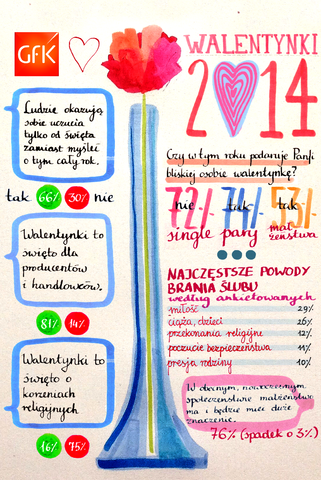 GFK
WALENTYNKI
2014
Ludzie okazują
sobie uczucia
tylko od święta
zamiast myśleć
o tym cały rok.
tak 66% 30% nie
Walentynki to
święto dla
producentów
i handlowców.
81% 14%
Walentynki to
święto o
korzeniach
religijnych
16% 75%
Czy w tym roku podaruje Pan/i
bliskiej osobie walentynkę?
72% 74% 53%
nie tak tak
single pary małżeństwa
NAJCZĘSTSZE POWODY
BRANIA ŚLUBU
według ankietowanych
miłość 29%
ciąża, dzieci 26%
przekonania religijne 12%
poczucie bezpieczeństwa 11%
presja rodziny 10%
W obecnym, nowoczesnym
społeczeństwie małżeństwo
ma i będzie mieć duże
znaczenie.
76% (spadek o 3%)